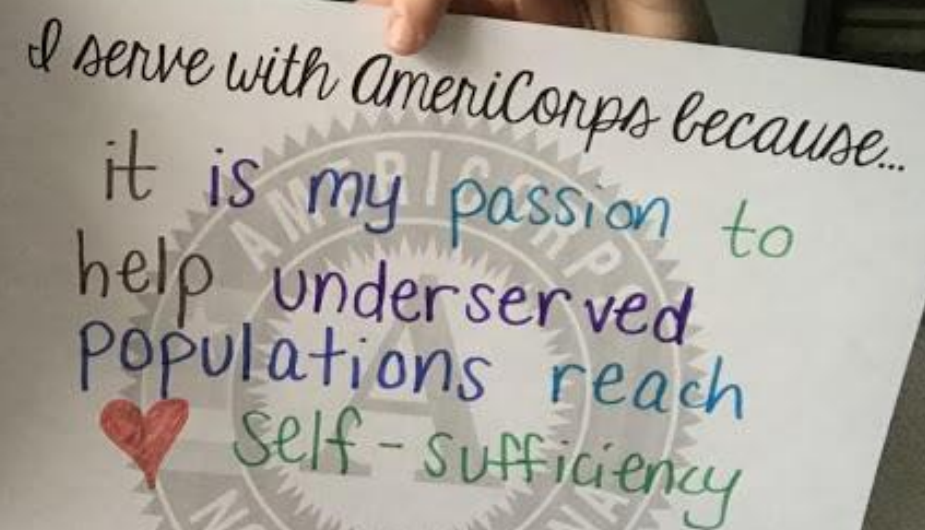 I serve with AmeriCorps because...
it is my passion to
help underserved
populations reach
self-sufficiency
AMERICORPS
A